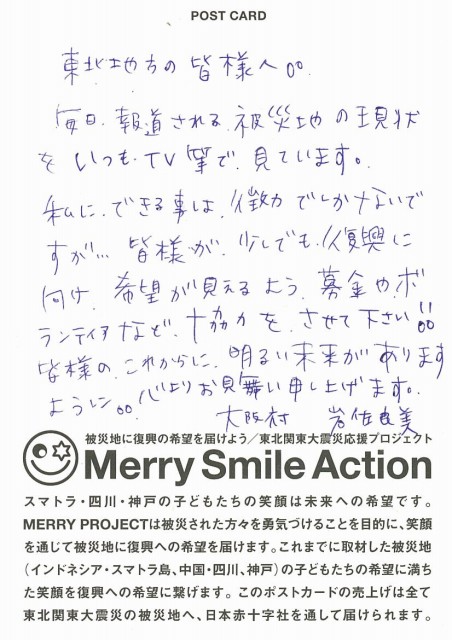 POST CARD
東北地方の皆様へ。。
毎日、報道される、被災地の現状
をいつも、TV等で、見ています。
私に、できる事は、微力でしかないで
すが… 皆様が、少しでも、復興に
向け、希望が見えるよう、募金や、ボ
ランティアなど、協力を、させて下さい!!
皆様の、これからに、明るい未来があります
ように。。心よりお見舞い申し上げます。
大阪府 岩佐良美
被災地に復興の希望を届けよう/東北関東大震災応援プロジェクト
Merry Smile Action
スマトラ・四川・神戸の子どもたちの笑顔は未来への希望です。
MERRY PROJECTは被災された方々を勇気づけることを目的に、笑顔
を通じて被災地に復興への希望を届けます。これまでに取材した被災地
（インドネシア・スマトラ島、中国・四川、神戸）の子どもたちの希望に満ち
た笑顔を復興への希望に繋げます。このポストカードの売上げは全て
東北関東大震災の被災地へ、日本赤十字社を通して届けられます。